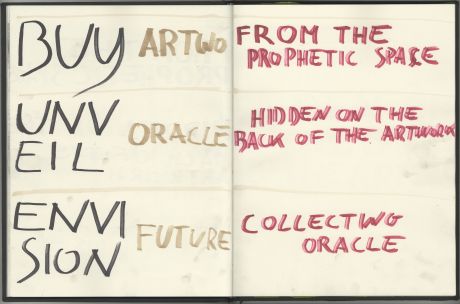 BUY
ARTWO
FROM THE
PROPHETIC SPACE
UNV
EIL
ORACLE
HIDDEN ON THE
BACK OF THE ARTWORK
ENVI
SION
FUTURE
COLLECTING
ORACLE